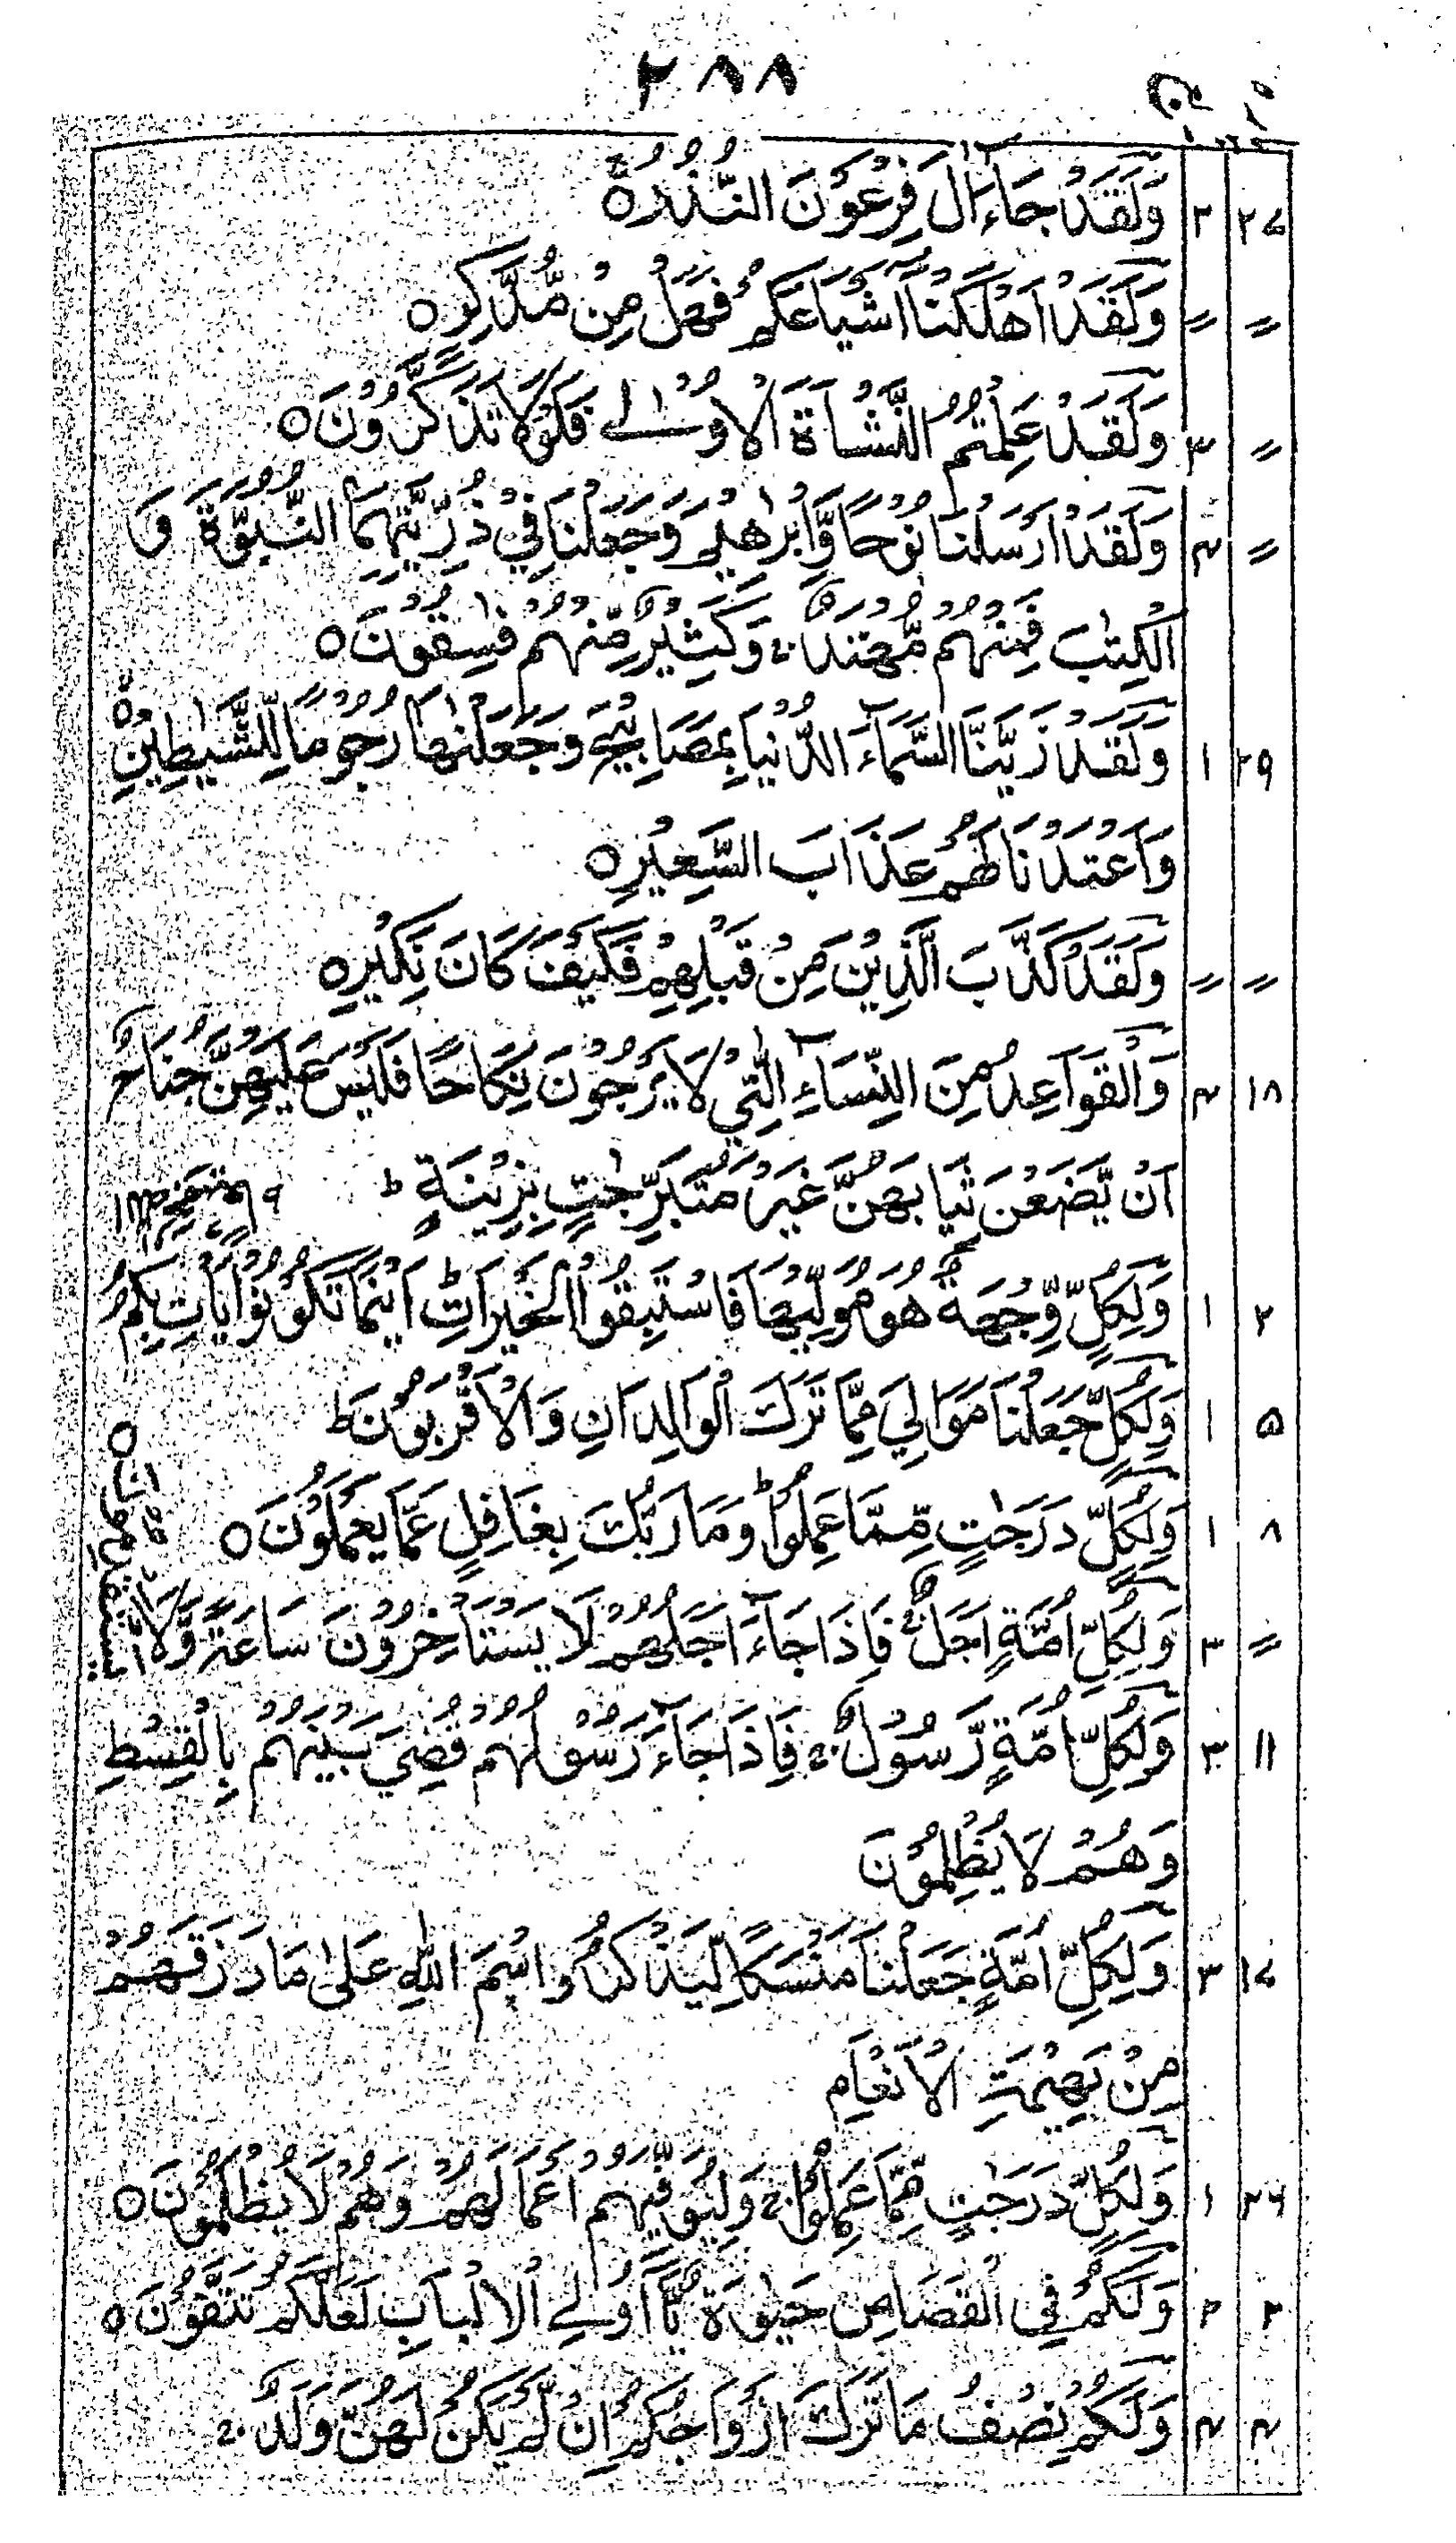 ٢٨٨
٢٧ ٢ وَلَقَدْ جَاءَ اٰلَ فِرْعَوْنَ النُّذُرُ ○
〃 〃 وَلَقَدْ اَهْلَكْنَا اَشْيَاعَكُمْ فَهَلْ مِنْ مُّدَّكِرٍ ○
〃 ٣ وَلَقَدْ عَلِمْتُمُ النَّشْاَةَ الْاُوْلٰے فَلَوْلَا تَذَكَّرُوْنَ ○
〃 ۴ وَلَقَدْ اَرْسَلْنَا نُوْحًا وَّاِبْرٰهِيْمَ وَجَعَلْنَا فِيْ ذُرِّيَّتِهِمَا النُّبُوَّةَ وَ
الْكِتٰبَ فَمِنْهُمْ مُّهْتَدٍ ۚ وَكَثِيْرٌ مِّنْهُمْ فٰسِقُوْنَ ○
٢٩ ١ وَلَقَدْ زَيَّنَّا السَّمَآءَ الدُّنْيَا بِمَصَابِيْحَ وَجَعَلْنٰهَا رُجُوْمًا لِّلشَّيٰطِيْنِ
وَاَعْتَدْنَا لَهُمْ عَذَابَ السَّعِيْرِ ○
〃 〃 وَلَقَدْ كَذَّبَ الَّذِيْنَ مِنْ قَبْلِهِمْ فَكَيْفَ كَانَ نَكِيْرِ ○
١٨ ۴ وَالْقَوَاعِدُ مِنَ النِّسَاءِ الّٰتِيْ لَا يَرْجُوْنَ نِكَاحًا فَلَيْسَ عَلَيْهِنَّ جُنَاحٌ
اَنْ يَّضَعْنَ ثِيَابَهُنَّ غَيْرَ مُتَبَرِّجٰتٍ بِزِيْنَةٍ ط
٢ ١ وَلِكُلٍّ وِّجْهَةٌ هُوَ مُوَلِّيْهَا فَاسْتَبِقُوا الْخَيْرَاتِ ط اَيْنَمَا تَكُوْنُوْا يَاْتِ بِكُمُ
۵ ١ وَلِكُلٍّ جَعَلْنَا مَوَالِيَ مِمَّا تَرَكَ الْوَالِدَانِ وَالْاَقْرَبُوْنَ ط
٨ ١ وَلِكُلٍّ دَرَجٰتٌ مِّمَّا عَمِلُوْا ط وَمَا رَبُّكَ بِغَافِلٍ عَمَّا يَعْمَلُوْنَ ○
〃 ٣ وَلِكُلِّ اُمَّةٍ اَجَلٌ ۚ فَاِذَا جَآءَ اَجَلُهُمْ لَا يَسْتَاْخِرُوْنَ سَاعَةً وَّلَا
١١ ٣ وَلِكُلِّ اُمَّةٍ رَّسُوْلٌ ۚ فَاِذَا جَآءَ رَسُوْلُهُمْ قُضِيَ بَيْنَهُمْ بِالْقِسْطِ
وَهُمْ لَا يُظْلَمُوْنَ
١٧ ٣ وَلِكُلِّ اُمَّةٍ جَعَلْنَا مَنْسَكًا لِّيَذْكُرُوا اسْمَ اللّٰهِ عَلٰى مَا رَزَقَهُمْ
مِنْ بَهِيْمَتِ الْاَنْعَامِ
٢٦ ١ وَلِكُلٍّ دَرَجٰتٌ مِّمَّا عَمِلُوْا ۚ وَلِيُوَفِّيَهُمْ اَعْمَالَهُمْ وَهُمْ لَا يُظْلَمُوْنَ ○
٢ ٢ وَلَكُمْ فِي الْقَصَاصِ حَيٰوةٌ يّٰٓاُولِے الْاَلْبَابِ لَعَلَّكُمْ تَتَّقُوْنَ ○
۴ ۴ وَلَكُمْ نِصْفُ مَا تَرَكَ اَزْوَاجُكُمْ اِنْ لَّمْ يَكُنْ لَهُنَّ وَلَدٌ ۚ